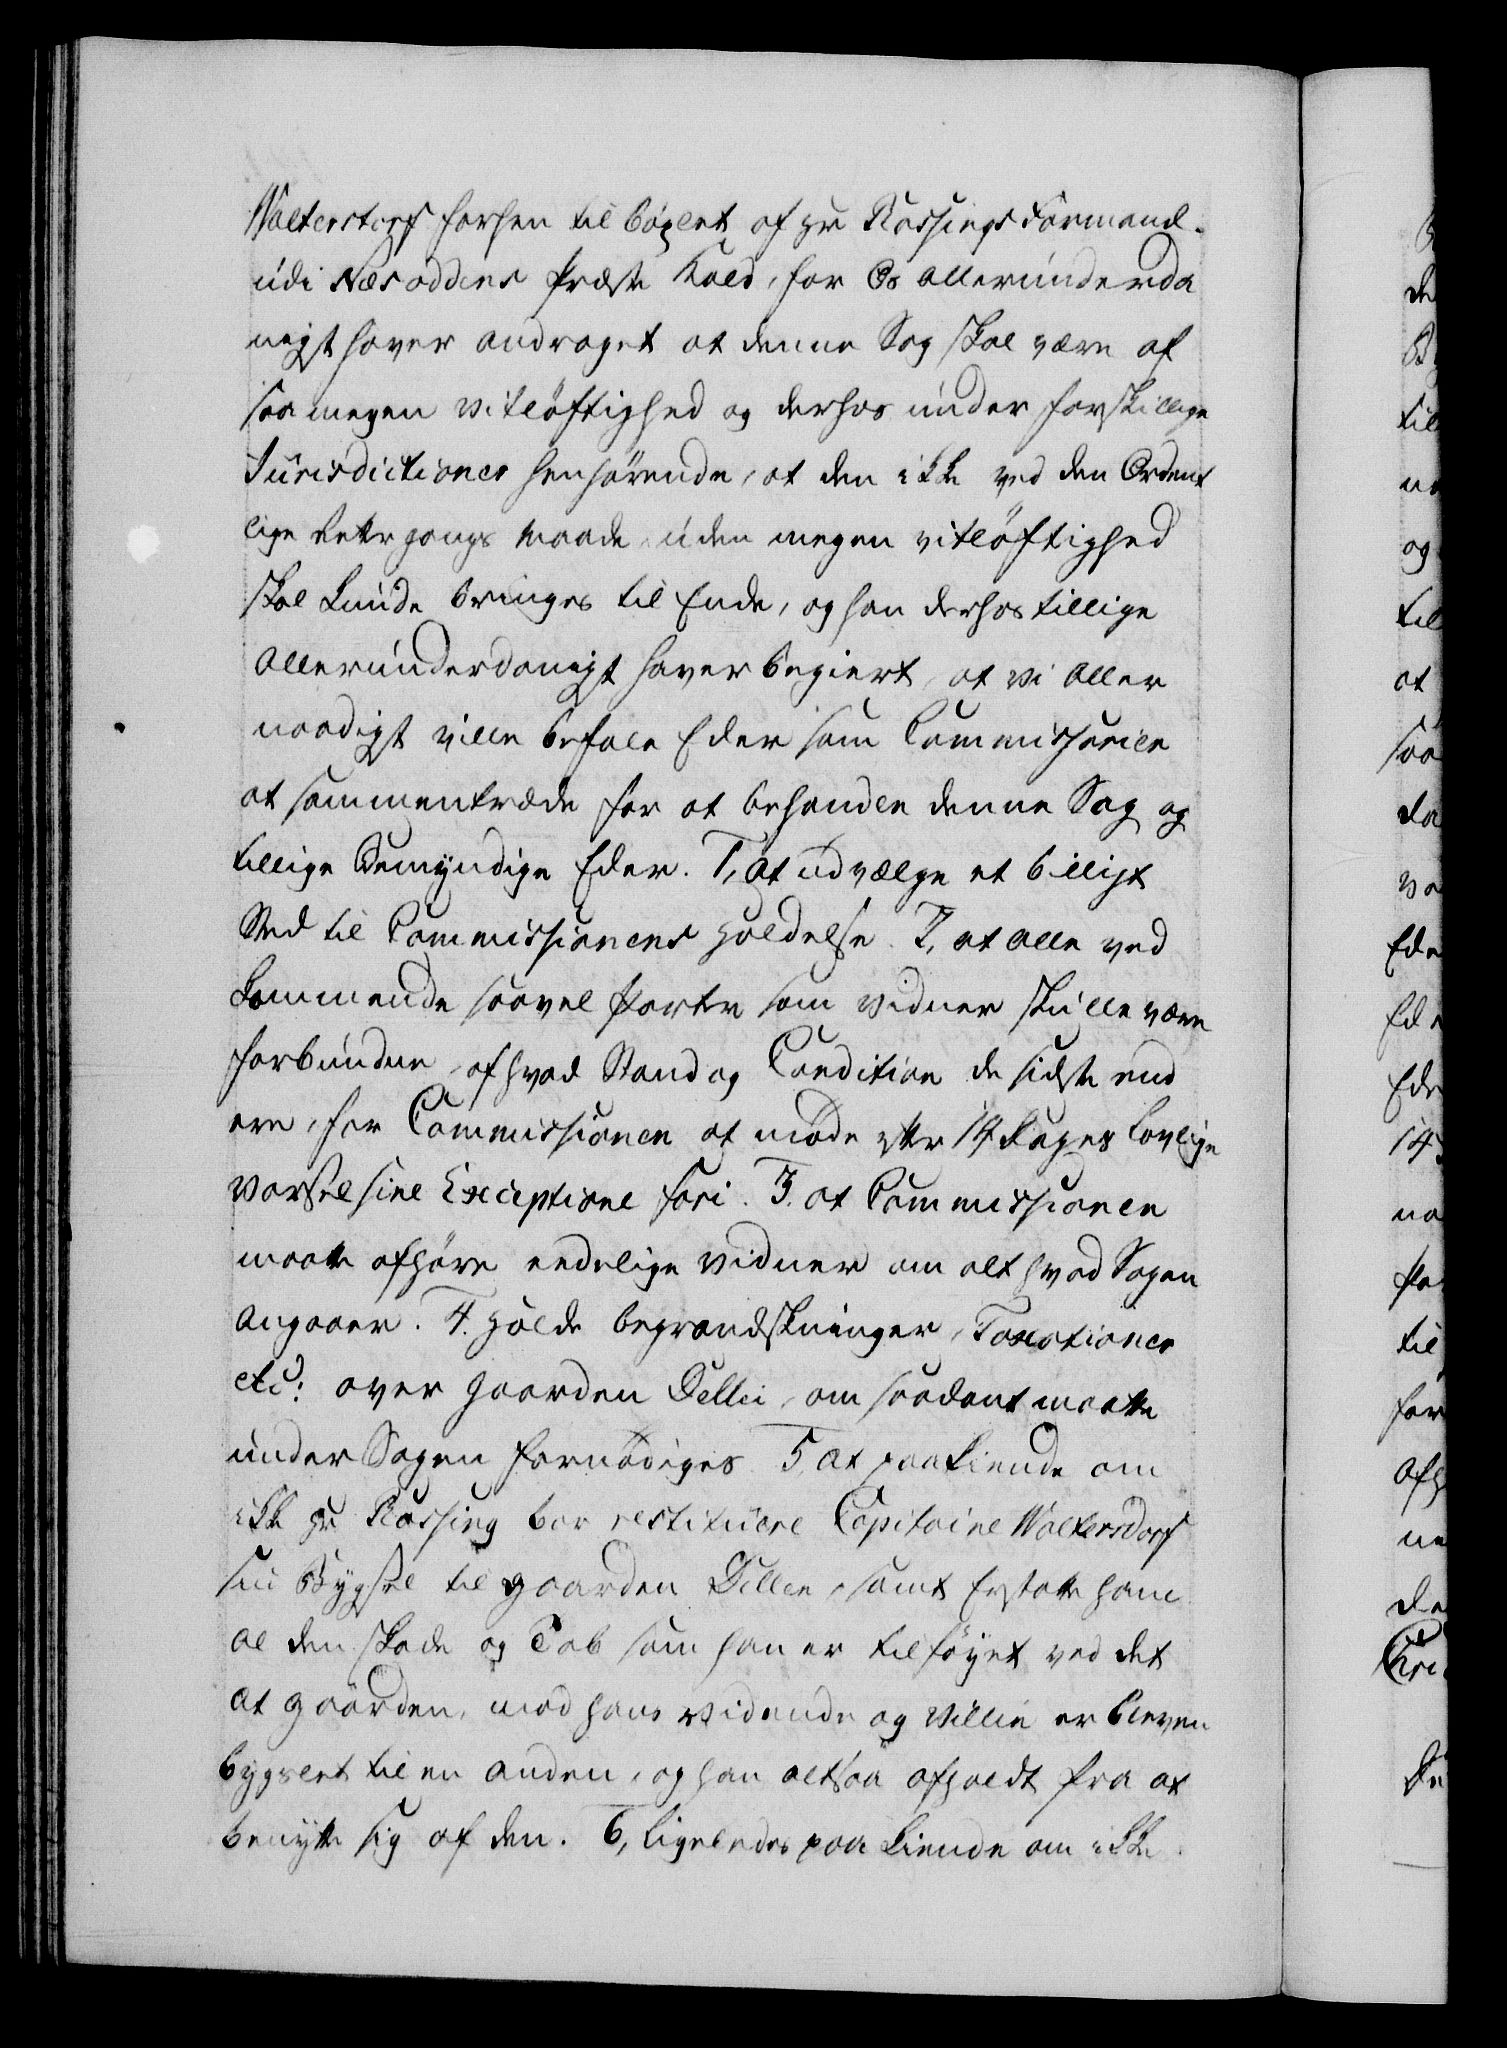 Walterstorf forhen til bøxlet af Hr Rossings Formand
udi Næsoddens Præste Kald, for Os allerunderda
nigst haver andraget at denne Sag skal være af
saa megen vitløftighed og derhos under forskillige
Jurisdictioner henhørende, at den ikke ved den Ordent
lige Rettergangs Maade uden megen vitløftighed
skal kunde bringes til Ende, og han derhos tillige
Allerunderdanigst haver begiert, at vi Aller
naadigst ville befale Eder som Commissarier
at sammentræde for at behandle denne Sag og
tillige Bemyndige Eder. 1, at udvælge et billigt
Sted til Commissionens Holdelse. 2, at alle ved
kommende saavel Parter som Vidner skulle være
forbundne, af hvad Stand og Condition de sidste end
ere, for Commissionen at møde efter 14 Dages lovlige
Varsel sine Exceptione fori. 3. at Commissionen
maatte afhøre eedelige Vidner om alt hvad Sagen
angaaer. 4. Holde begrandskninger, Taxationer
etc: over Gaarden Dellei, om saadant maatte
under Sagen fornødiges. 5, at paakiende om
ikke Hr Rossing bør restituere Capitaine Waltersdorf
sin Bygsel til Gaarden Dellie, samt Erstatte ham
al den skade og Tab som han er tilføyet ved det
at Gaarden, mod hans vidende og Villie er bleven
bygslet til en anden, og han altsaa afholdt fra at
benytte sig af den. 6, ligeledes paa kiende om ikke